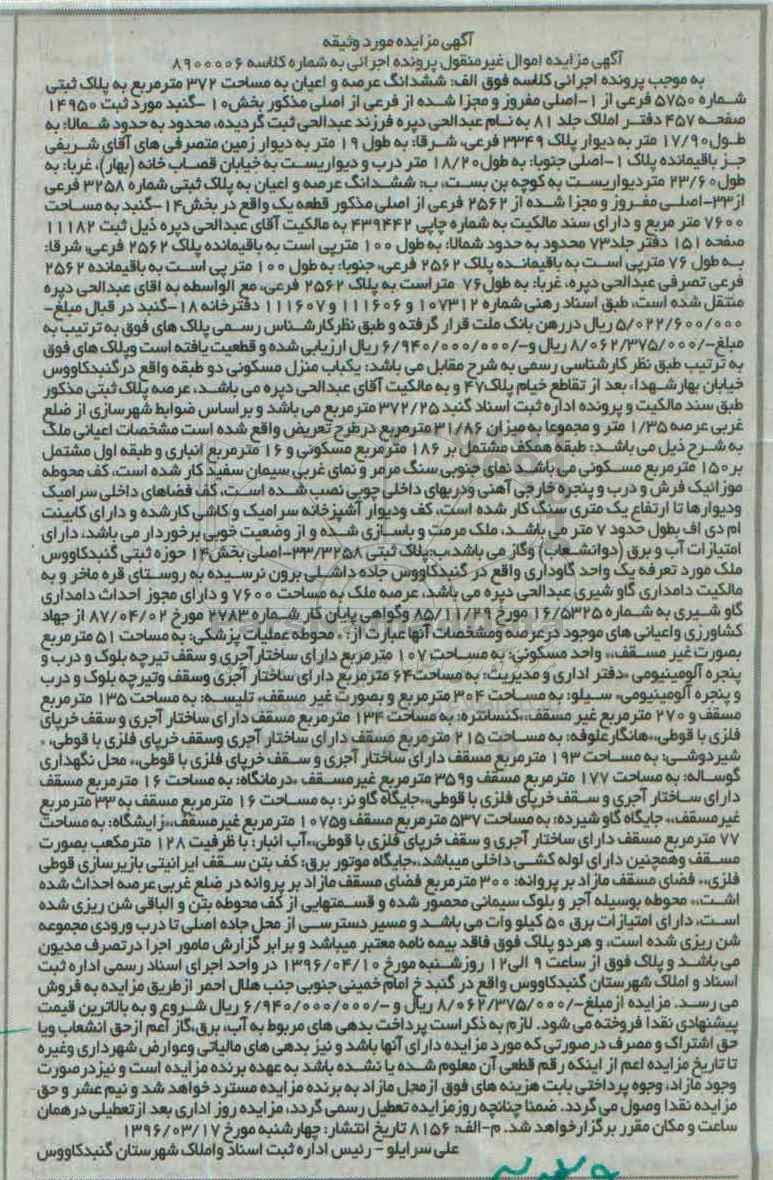 آگهی مزایده مورد وثیقه
آگهی مزایده اموال غیرمنقول پرونده اجرائی به شماره کلاسه ۸۹۰۰۰۰۶
به موجب پرونده اجرائی کلاسه فوق الف: ششدانگ عرصه و اعیان به مساحت ۳۷۲ مترمربع به پلاک ثبتی
شماره ۵۷۵۰ فرعی از ۱-اصلی مفروز و مجزا شده از فرعی از اصلی مذکور بخش۱۰ -گنبد مورد ثبت ۱۴۹۵۰
صفحه ۴۵۷ دفتر املاک جلد ۸۱ به نام عبدالحی دیره فرزند عبدالحی ثبت گردیده، محدود به حدود شمالا: به
طول۱۷/۹۰ متر به دیوار پلاک ۳۳۴۹ فرعی، شرقا: به طول ۱۹ متر به دیوار زمین متصرفی های آقای شریفی
جز باقیمانده پلاک ۱-اصلی جنوبا: به طول۱۸/۲۰ متر درب و دیواریست به خیابان قصاب خانه (بهار)، غربا: به
طول۲۳/۶۰ متردیواریست به کوچه بن بست، ب: ششدانگ عرصه و اعیان به پلاک ثبتی شماره ۳۲۵۸ فرعی
از۳۳-اصلی مفروز و مجزا شده از ۲۵۶۲ فرعی از اصلی مذکور قطعه یک واقع در بخش۱۴-گنبد به مساحت
۷۶۰۰ متر مربع و دارای سند مالکیت به شماره چاپی ۴۳۹۴۴۲ به مالکیت آقای عبدالحی دیره ذیل ثبت ۱۱۱۸۲
صفحه ۱۵۱ دفتر جلد۷۳ محدود به حدود شمالا: به طول ۱۰۰ مترپی است به باقیمانده پلاک ۲۵۶۲ فرعی، شرقا:
به طول ۷۶ مترپی است به باقیمانده پلاک ۲۵۶۲ فرعی، جنوبا: به طول ۱۰۰ متر پی است به باقیمانده ۲۵۶۲
فرعی تصرفی عبدالحی دیره، غربا: به طول۷۶ متراست به پلاک ۲۵۶۲ فرعی، مع الواسطه به اقای عبدالحی دیره
منتقل شده است، طبق اسناد رهنی شماره ۱۰۷۳۱۲ و ۱۱۱۶۰۶ و ۱۱۱۶۰۷ دفترخانه ۱۸-گنبد در قبال مبلغ-
/۵/۰۲۲/۶۰۰/۰۰۰ ریال دررهن بانک ملت قرار گرفته و طبق نظرکارشناس رسمی پلاک های فوق به ترتیب به
مبلغ-/۸/۰۶۲/۳۷۵/۰۰۰ ریال و-/۶/۹۴۰/۰۰۰/۰۰۰ ریال ارزیابی شده و قطعیت یافته است وپلاک های فوق
به ترتیب طبق نظر کارشناسی رسمی به شرح مقابل می باشد: یکباب منزل مسکونی دو طبقه واقع درگنبدکاووس
خیابان بهارشهدا، بعد از تقاطع خیام پلاک۴۷ و به مالکیت آقای عبدالحی دیره می باشد، عرصه پلاک ثبتی مذکور
طبق سند مالکیت و پرونده اداره ثبت اسناد گنبد ۳۷۲/۲۵ مترمربع می باشد و براساس ضوابط شهرسازی از ضلع
غربی عرصه ۱/۳۵ متر و مجموعا به میزان ۳۱/۸۶ مترمربع درطرح تعریض واقع شده است مشخصات اعیانی ملک
به شرح ذیل می باشد: طبقه همکف مشتمل بر ۱۸۶ مترمربع مسکونی و ۱۶ مترمربع انباری و طبقه اول مشتمل
بر۱۵۰ مترمربع مسکونی می باشد نمای جنوبی سنگ مرمر و نمای غربی سیمان سفید کار شده است، کف محوطه
موزائیک فرش و درب و پنجره خارجی آهنی ودربهای داخلی چوبی نصب شده است، کف فضاهای داخلی سرامیک
ودیوارها تا ارتفاع یک متری سنگ کار شده است، کف ودیوار آشپزخانه سرامیک و کاشی کارشده و دارای کابینت
ام دی اف بطول حدود ۷ متر می باشد، ملک مرمت و باسازی شده و از وضعیت خوبی برخوردار می باشد، دارای
امتیازات آب و برق (دوانشعاب) وگاز می باشد،ب:پلاک ثبتی ۳۳/۳۲۵۸-اصلی بخش۱۴ حوزه ثبتی گنبدکاووس
ملک مورد تعرفه یک واحد گاوداری واقع در گنبدکاووس جاده داشلی برون نرسیده به روستای قره ماخر و به
مالکیت دامداری گاو شیری عبدالحی دیره می باشد، عرصه ملک به مساحت ۷۶۰۰ و دارای مجوز احداث دامداری
گاو شیری به شماره ۱۶/۵۳۲۵ مورخ ۸۵/۱۱/۲۹ وگواهی پایان کار شماره ۲۷۸۳ مورخ ۸۷/۰۴/۰۲ از جهاد
کشاورزی واعیانی های موجود درعرصه ومشخصات آنها عبارت از: * محوطه عملیات پزشکی: به مساحت ۵۱ مترمربع
بصورت غیر مسقف،* واحد مسکونی: به مساحت ۱۰۷ مترمربع دارای ساختارآجری و سقف تیرچه بلوک و درب و
پنجره آلومینیومی *دفتر اداری و مدیریت: به مساحت۶۴ مترمربع دارای ساختار آجری وسقف وتیرچه بلوک و درب
و پنجره آلومینیومی* سیلو: به مساحت ۳۰۴ مترمربع و بصورت غیر مسقف* تلیسه: به مساحت ۱۳۵ مترمربع
مسقف و ۲۷۰ مترمربع غیر مسقف،*کنسانتره: به مساحت ۱۳۴ مترمربع مسقف دارای ساختار آجری و سقف خرپای
فلزی با قوطی،*هانگارعلوفه: به مساحت ۲۱۵ مترمربع مسقف دارای ساختار آجری وسقف خرپای فلزی با قوطی، *
شیردوشی: به مساحت ۱۹۳ مترمربع مسقف دارای ساختار آجری و سقف خرپای فلزی با قوطی،* محل نگهداری
گوساله: به مساحت ۱۷۷ مترمربع مسقف و۳۵۹ مترمربع غیرمسقف *درمانگاه: به مساحت ۱۶ مترمربع مسقف
دارای ساختار آجری و سقف خرپای فلزی با قوطی،*جایگاه گاو نر: به مساحت ۱۶ مترمربع مسقف به ۳۳ مترمربع
غیرمسقف،* جایگاه گاو شیرده: به مساحت ۵۳۷ مترمربع مسقف و۱۰۷۵ مترمربع غیرمسقف،*زایشگاه: به مساحت
۷۷ مترمربع مسقف دارای ساختار آجری و سقف خرپای فلزی با قوطی،*آب انبار: با ظرفیت ۱۲۸ مترمکعب بصورت
مسقف وهمچنین دارای لوله کشی داخلی میباشد،*جایگاه موتور برق: کف بتن سقف ایرانیتی بازیرسازی قوطی
فلزی،* فضای مسقف مازاد بر پروانه: ۳۰۰ مترمربع فضای مسقف مازاد بر پروانه در ضلع غربی عرصه احداث شده
اشت،* محوطه بوسیله آجر و بلوک سیمانی محصور شده و قسمتهایی از کف محوطه بتن و الباقی شن ریزی شده
است، دارای امتیازات برق ۵۰ کیلو وات می باشد و مسیر دسترسی از محل جاده اصلی تا درب ورودی مجموعه
شن ریزی شده است، و هردو پلاک فوق فاقد بیمه نامه معتبر میباشد و برابر گزارش مامور اجرا درتصرف مدیون
می باشد و پلاک فوق از ساعت ۹ الی۱۲ روزشنبه مورخ ۱۳۹۶/۰۴/۱۰ در واحد اجرای اسناد رسمی اداره ثبت
اسناد و املاک شهرستان گنبدکاووس واقع در گنبد خ امام خمینی جنوبی جنب هلال احمر ازطریق مزایده به فروش
می رسد. مزایده ازمبلغ-/۸/۰۶۲/۳۷۵/۰۰۰ ریال و -/۶/۹۴۰/۰۰۰/۰۰۰ ریال شروع و به بالاترین قیمت
پیشنهادی نقدا فروخته می شود. لازم به ذکراست پرداخت بدهی های مربوط به آب، برق،گاز اعم ازحق انشعاب ویا
حق اشتراک و مصرف درصورتی که مورد مزایده دارای آنها باشد و نیز بدهی های مالیاتی وعوارض شهرداری وغیره
تا تاریخ مزایده اعم از اینکه رقم قطعی آن معلوم شده یا نشده باشد به عهده برنده مزایده است و نیز درصورت
وجود مازاد، وجوه پرداختی بابت هزینه های فوق ازمحل مازاد به برنده مزایده مسترد خواهد شد و نیم عشر و حق
مزایده نقدا وصول می گردد. ضمنا چنانچه روزمزایده تعطیل رسمی گردد، مزایده روز اداری بعد ازتعطیلی درهمان
ساعت و مکان مقرر برگزارخواهد شد. م-الف: ۸۱۵۶ تاریخ انتشار: چهارشنبه مورخ ۱۳۹۶/۰۳/۱۷
علی سرایلو - رئیس اداره ثبت اسناد واملاک شهرستان گنبدکاووس